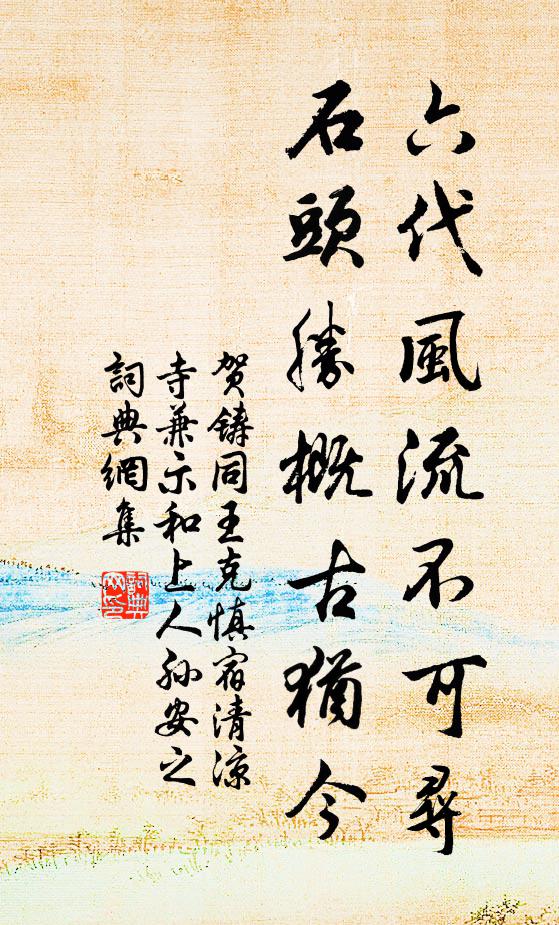 六代風流不可尋
石頭勝概古猶今
贺鑄同王克慎宿清凉
寺兼示和上人孙安之
詞典網集
詞典
网印